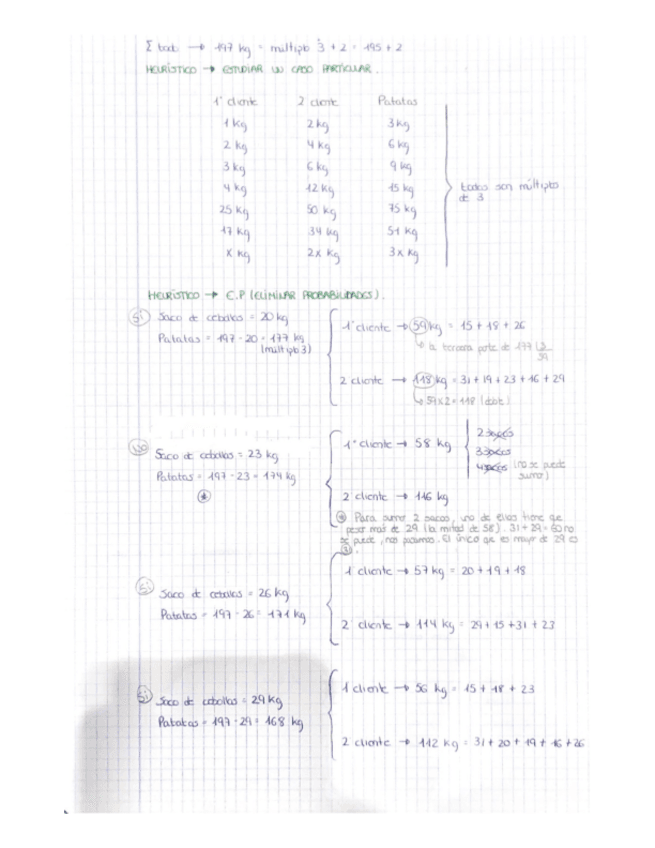 Σ total → 197 kg = múltiplo 3 + 2 = 195 + 2
HEURÍSTICO → ESTUDIAR UN CASO PARTICULAR.
1º cliente 2 cliente Patatas
1 kg 2 kg 3 kg
2 kg 4 kg 6 kg
3 kg 6 kg 9 kg
4 kg 12 kg 15 kg
25 kg 50 kg 75 kg
17 kg 34 kg 51 kg
x kg 2x kg 3x kg
todos son múltiplo
de 3
HEURÍSTICO → E.P (ELIMINAR PROBABILIDADES).
Sí
Saco de cebollas = 20 kg
Patatas = 197 - 20 = 177 kg
(múltiplo 3)
1º cliente → 59 kg = 15 + 18 + 26
↳ la tercera parte de 177 |3
59
2 cliente → 118 kg = 31 + 19 + 23 + 16 + 29
↳ 59 x 2 = 118 (doble)
No
Saco de cebollas = 23 kg
Patatas = 197 - 23 = 174 kg
*
1º cliente → 58 kg
2 sacos
3 sacos
4 sacos (no se puede
sumar)
2 cliente → 116 kg
* Para sumar 2 sacos, uno de ellos tiene que
pesar más de 29 (la mitad de 58). 31 + 29 = 60 no
se puede, nos pasamos. El único que es mayor de 29 es
31.
Sí
Saco de cebollas = 26 kg
Patatas = 197 - 26 = 171 kg
1 cliente → 57 kg = 20 + 19 + 18
2 cliente → 114 kg = 29 + 15 + 31 + 23
Sí
Saco de cebollas = 29 kg
Patatas = 197 - 29 = 168 kg
1 cliente → 56 kg = 15 + 18 + 23
2 cliente → 112 kg = 31 + 20 + 19 + 16 + 26